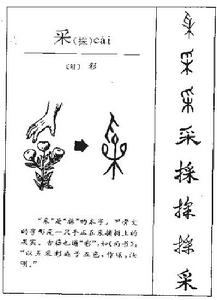 采(採)cǎi
(附) 彩
"采"是"採"的本字。甲骨文
的字形是一只手正在采摘树上的
果实。古籍也通"彩",如《尚书》:
"以五采彰施于五色,作服,汝
明。"
采
採
採
採
采